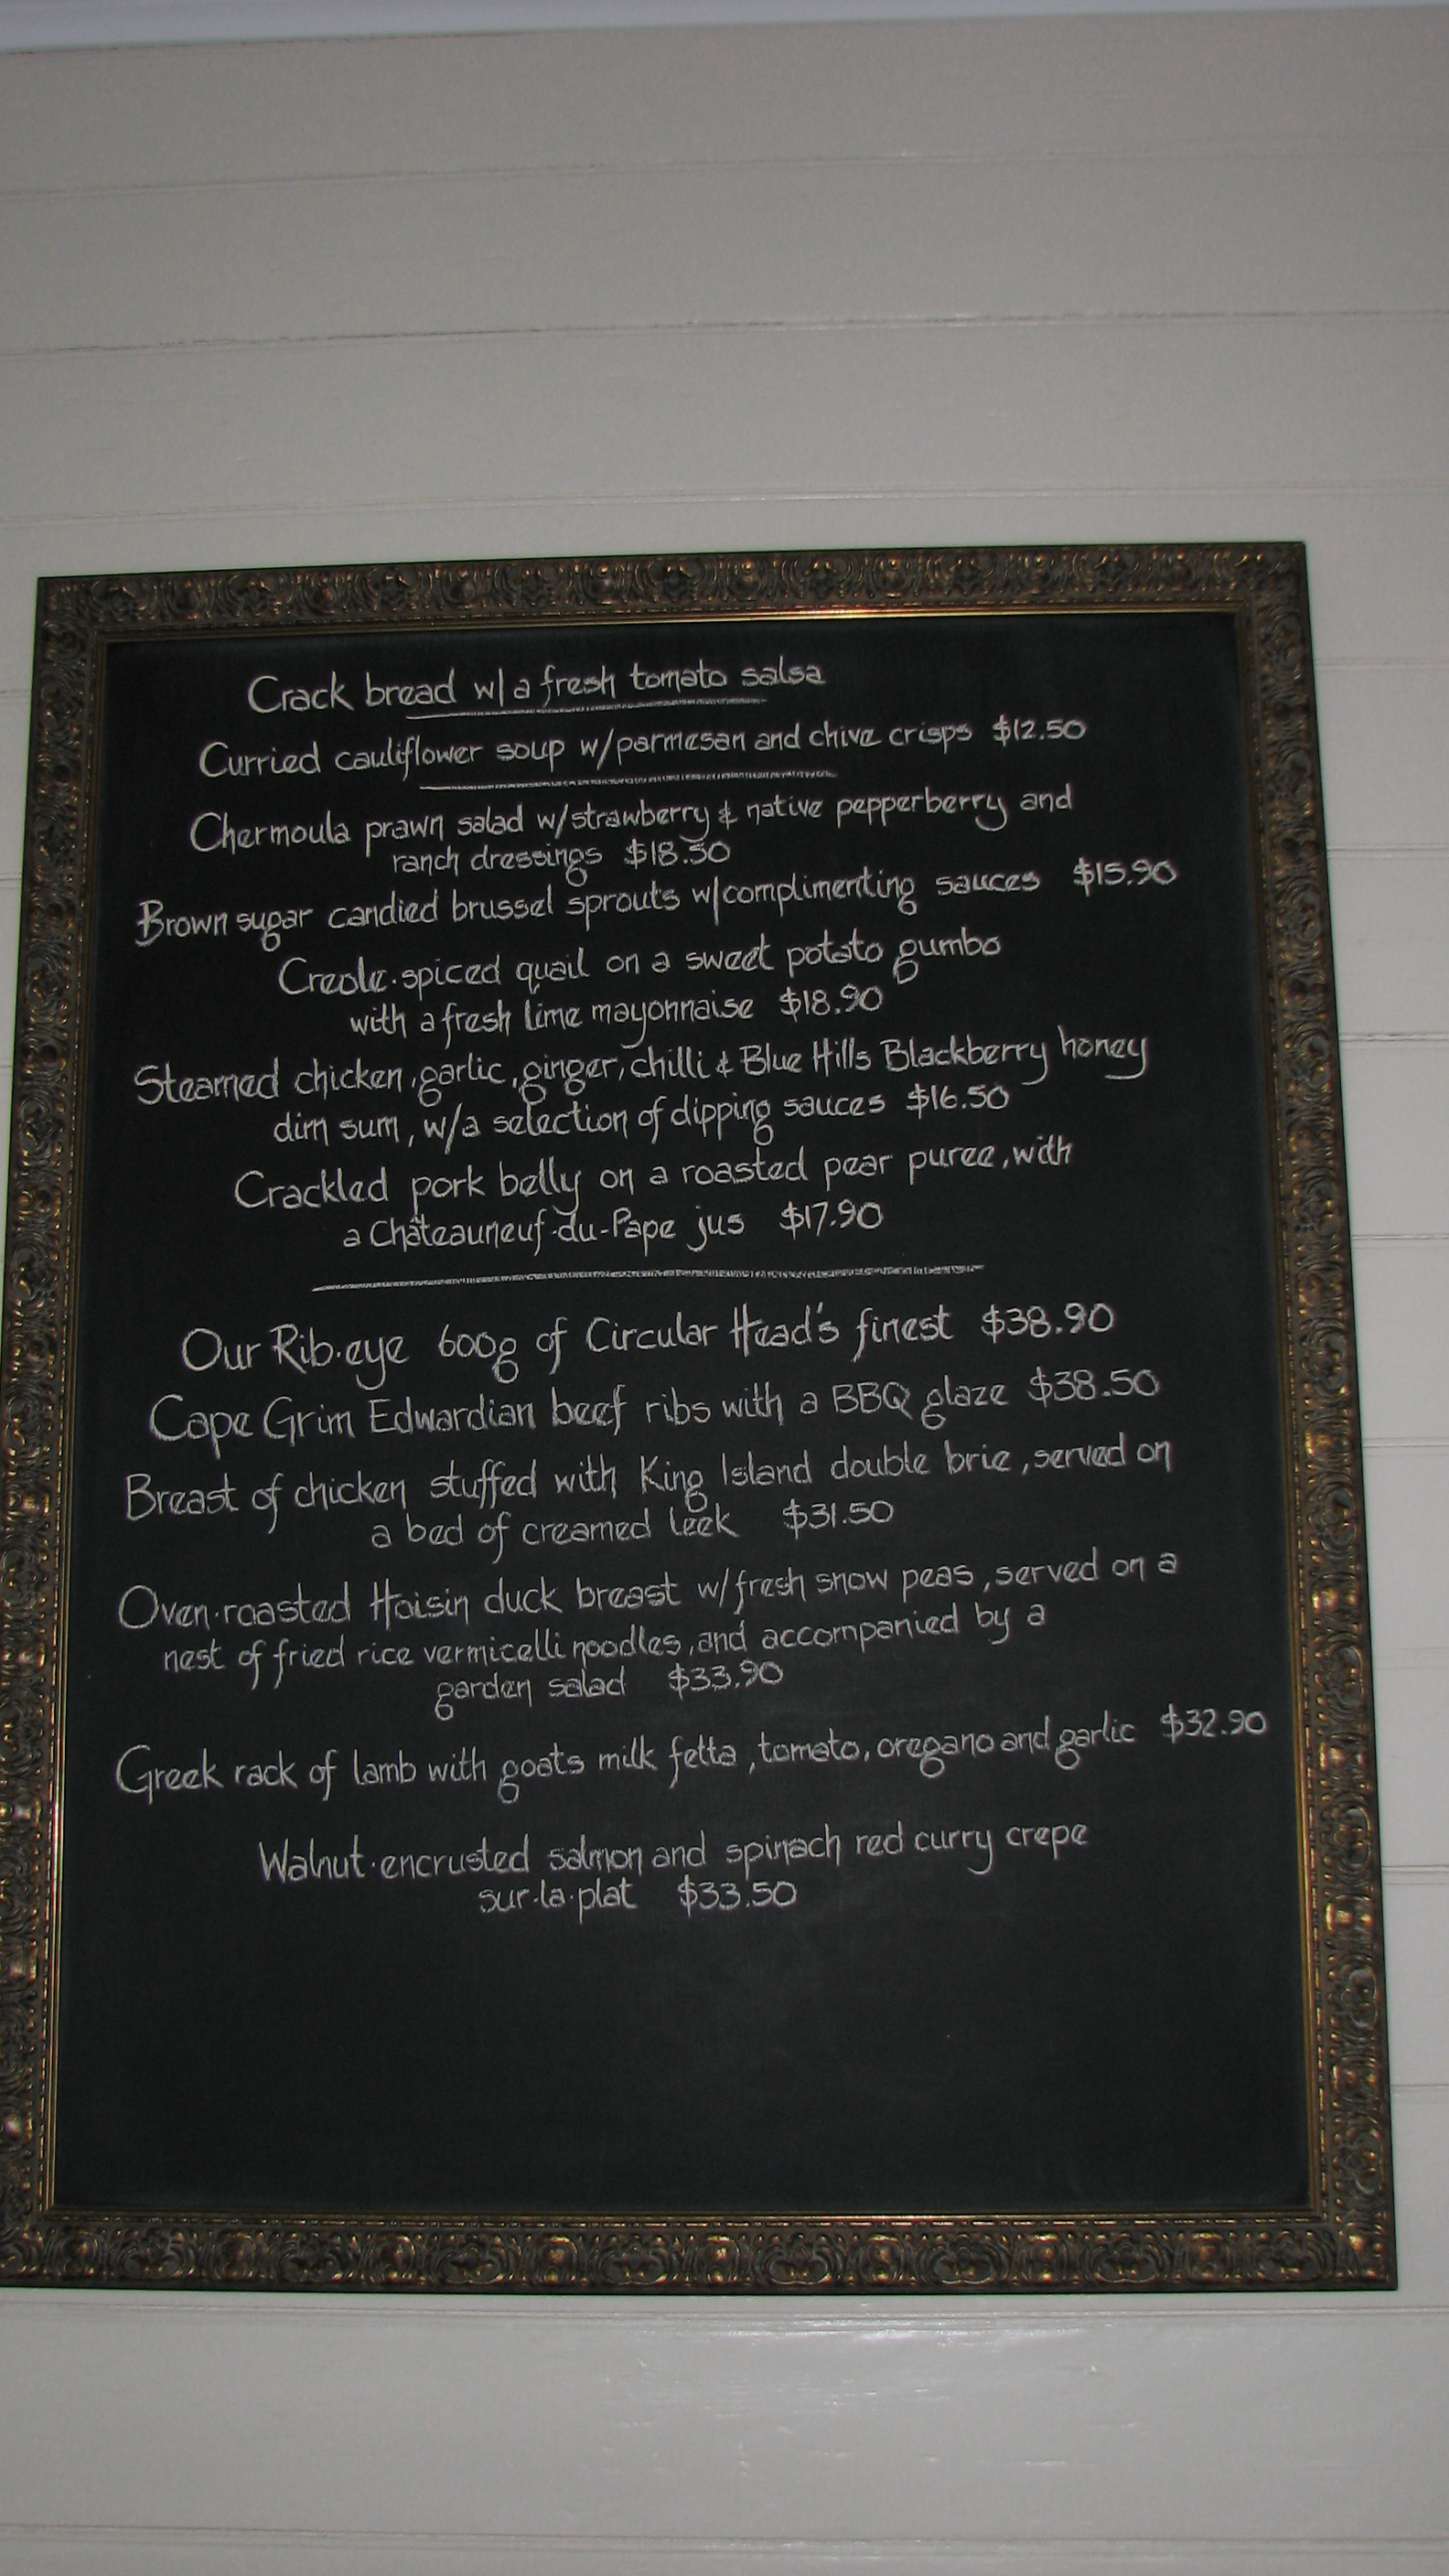 Crack bread w/a fresh tomato salsa
Curried cauliflower soup w/parmesan and chive crisps $12.50
Chermoula prawn salad w/strawberry & native pepperberry and
ranch dressings $18.50
Brown sugar candied brussel sprouts w/complimenting sauces $15.90
Creole-spiced quail on a sweet potato gumbo
with a fresh lime mayonnaise $18.90
Steamed chicken, garlic, ginger, chilli & Blue Hills Blackberry honey
dim sum, w/a selection of dipping sauces $16.50
Crackled pork belly on a roasted pear puree, with
a Châteauneuf-du-Pape jus $17.90
Our Rib-eye 600g of Circular Head's finest $38.90
Cape Grim Edwardian beef ribs with a BBQ glaze $38.50
Breast of chicken stuffed with King Island double brie, served on
a bed of creamed leek $31.50
Oven-roasted Hoisin duck breast w/fresh snow peas, served on a
nest of fried rice vermicelli noodles, and accompanied by a
garden salad $33.90
Greek rack of lamb with goats milk fetta, tomato, oregano and garlic $32.90
Walnut-encrusted salmon and spinach red curry crepe
sur-la-plat $33.50